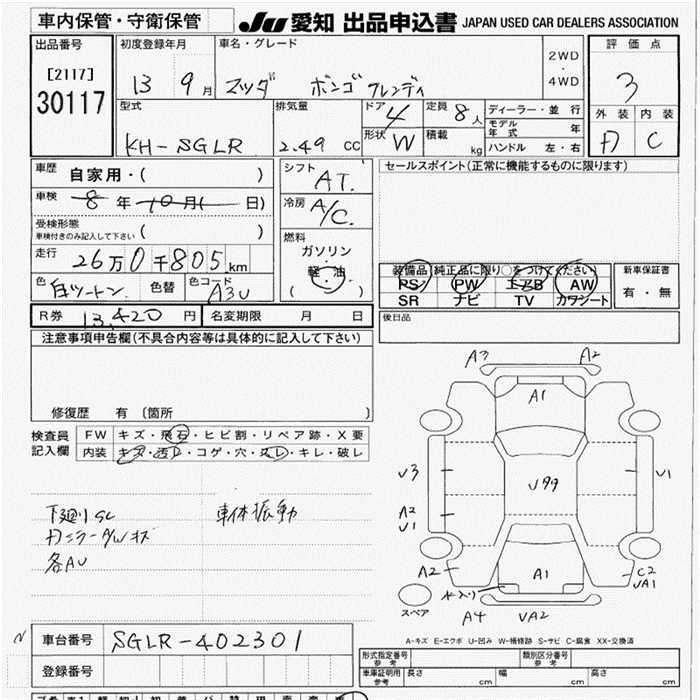 車内保管・守衛保管 JU 愛知 出品申込書 JAPAN USED CAR DEALERS ASSOCIATION
出品番号 初度登録年月 車名・グレード 2WD・4WD 評価点
[2117] 13 9月 マツダ ボンゴ フレンディ 3
30117
型式 排気量 ドア 4 定員 8人 ディーラー・並行 外装 内装
モデル年式 年
KH-SGLR 2.49 CC 形状 W 積載 kg ハンドル 左・右 C
車歴 自家用・( ) シフト AT. セールスポイント(正常に機能するものに限ります)
車検 8年 10月( 日) 冷房 A/C.
受検形態 ( )
車検付きのみ記入して下さい
燃料
ガソリン
走行 26万0千805km 軽油 装備品(純正品に限り○をつけてください) 新車保証書
・( ) PS PW エアB AW 有・無
色 色替 色コード A3U SR ナビ TV カワシート
R券 13,420円 名変期限 月 日 後日品
注意事項申告欄(不具合内容等は具体的に記入して下さい)
A3 A2
A1
修復歴 有 〔箇所 〕
検査員 FW キズ・飛石・ヒビ割・リペア跡・X要
記入欄 内装 キズ・汚レ・コゲ・穴・スレ・キレ・破レ
U3 U99 U1
下廻りSC 車体振動 A2
U1
各AU
A2 A1 C2
UA1
スペア A4 UA2
A-キズ E-エクボ U-凹み W-補修跡 S-サビ C-腐食 XX-交換済
N 車台番号 SGLR-402301
登録番号 形式指定番号 参考 類別区分番号 参考
車庫証明用 参考 長さ cm 幅 cm 高さ cm